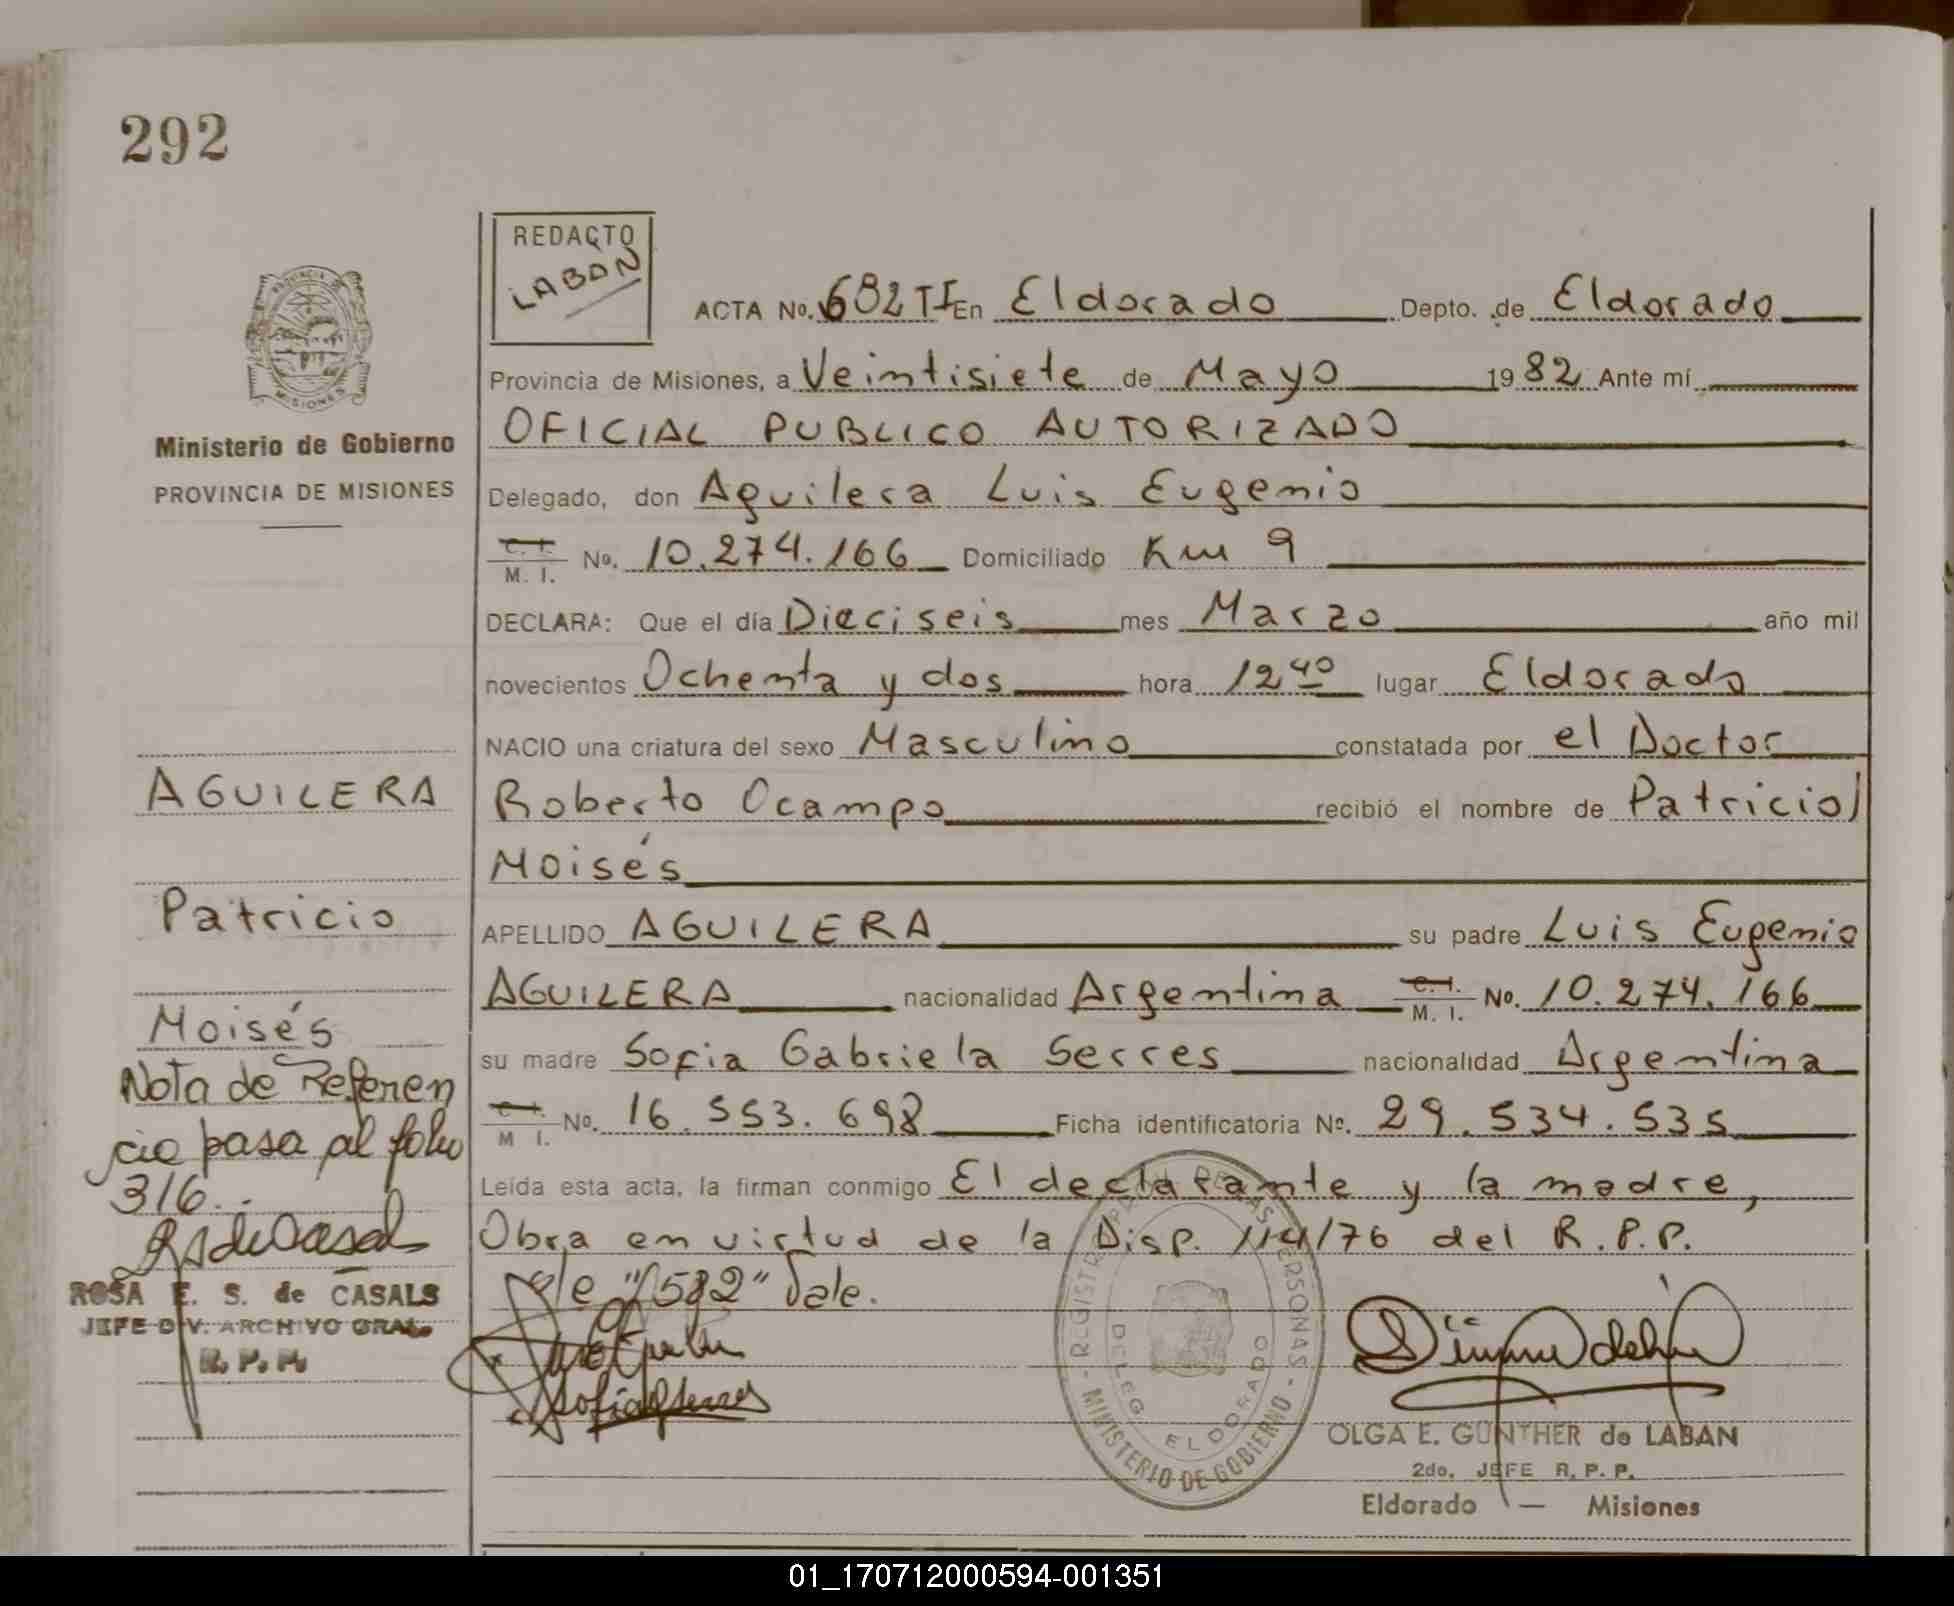 292
REDACTO
LABAN
ACTA No. 682 TI En Eldorado Depto. de Eldorado
Provincia de Misiones, a Veintisiete de Mayo 1982 Ante mí
OFICIAL PUBLICO AUTORIZADO
Ministerio de Gobierno
PROVINCIA DE MISIONES
Delegado, don Aguilera Luis Eugenio
C. I. M. I. No. 10.274.166 Domiciliado Km 9
DECLARA: Que el día Dieciseis mes Marzo año mil
novecientos Ochenta y dos hora 12 40 lugar Eldorado
NACIO una criatura del sexo Masculino constatada por el Doctor
Roberto Ocampo recibió el nombre de Patricio
Moisés
APELLIDO AGUILERA su padre Luis Eugenio
AGUILERA nacionalidad Argentina C. I. M. I. No. 10.274.166
su madre Sofia Gabriela Serres nacionalidad Argentina
C. I. M I. No. 16.553.698 Ficha identificatoria No. 29.534.535
Leída esta acta, la firman conmigo El declarante y la madre,
Obra en virtud de la Disp. 114/76 del R.P.P.
Vale.
AGUILERA
Patricio
Moisés
Nota de Referen
cia pasa al folio
316.
ROSA E. S. de CASALS
JEFE DIV. ARCHIVO GRAL.
R. P. P.
REGISTRO PROV. PERSONAS - MINISTERIO DE GOBIERNO -
DELEG. ELDORADO
OLGA E. GUNTHER de LABAN
2do. JEFE R. P. P.
Eldorado — Misiones
01_170712000594-001351